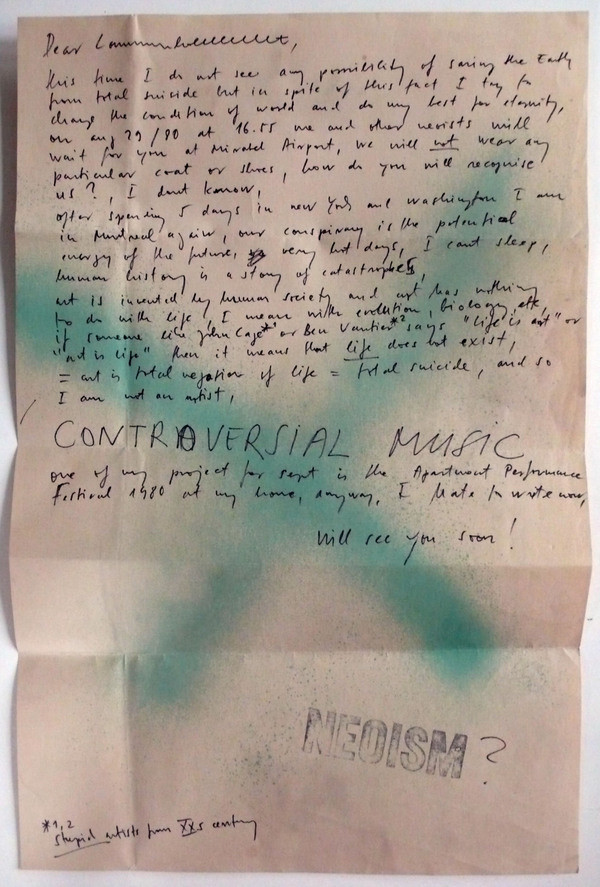 Dear
this time I do not see any possibility of saving the Earth
from total suicide but in spite of this fact I try to
change the condition of world and do my best for eternity,
on aug 29/80 at 16.55 me and other neoists will
wait for you at Mirabel Airport, we will not wear any
particular coat or shoes, how do you will recognise
us?, I dont know,
after spending 5 days in new York and washington I am
in Montreal again, our conspiracy is the potential
energy of the future, very hot days, I cant sleep,
human history is a story of catastrophes,
art is invented by human society and art has nothing
to do with life, I mean with evolution, biology, etc,
if someone like John Cage*1 or Ben Vautier*2 says "life is art" or
"art is life" then it means that life does not exist,
= art is total negation of life = total suicide, and so
I am not an artist,
CONTRAVERSIAL MUSIC
one of my project for sept is the Apartment Performance
Festival 1980 at my home, anyway, I hate to write now,
Will see you soon!
NEOISM?
*1,2
stupid artists from XXs century